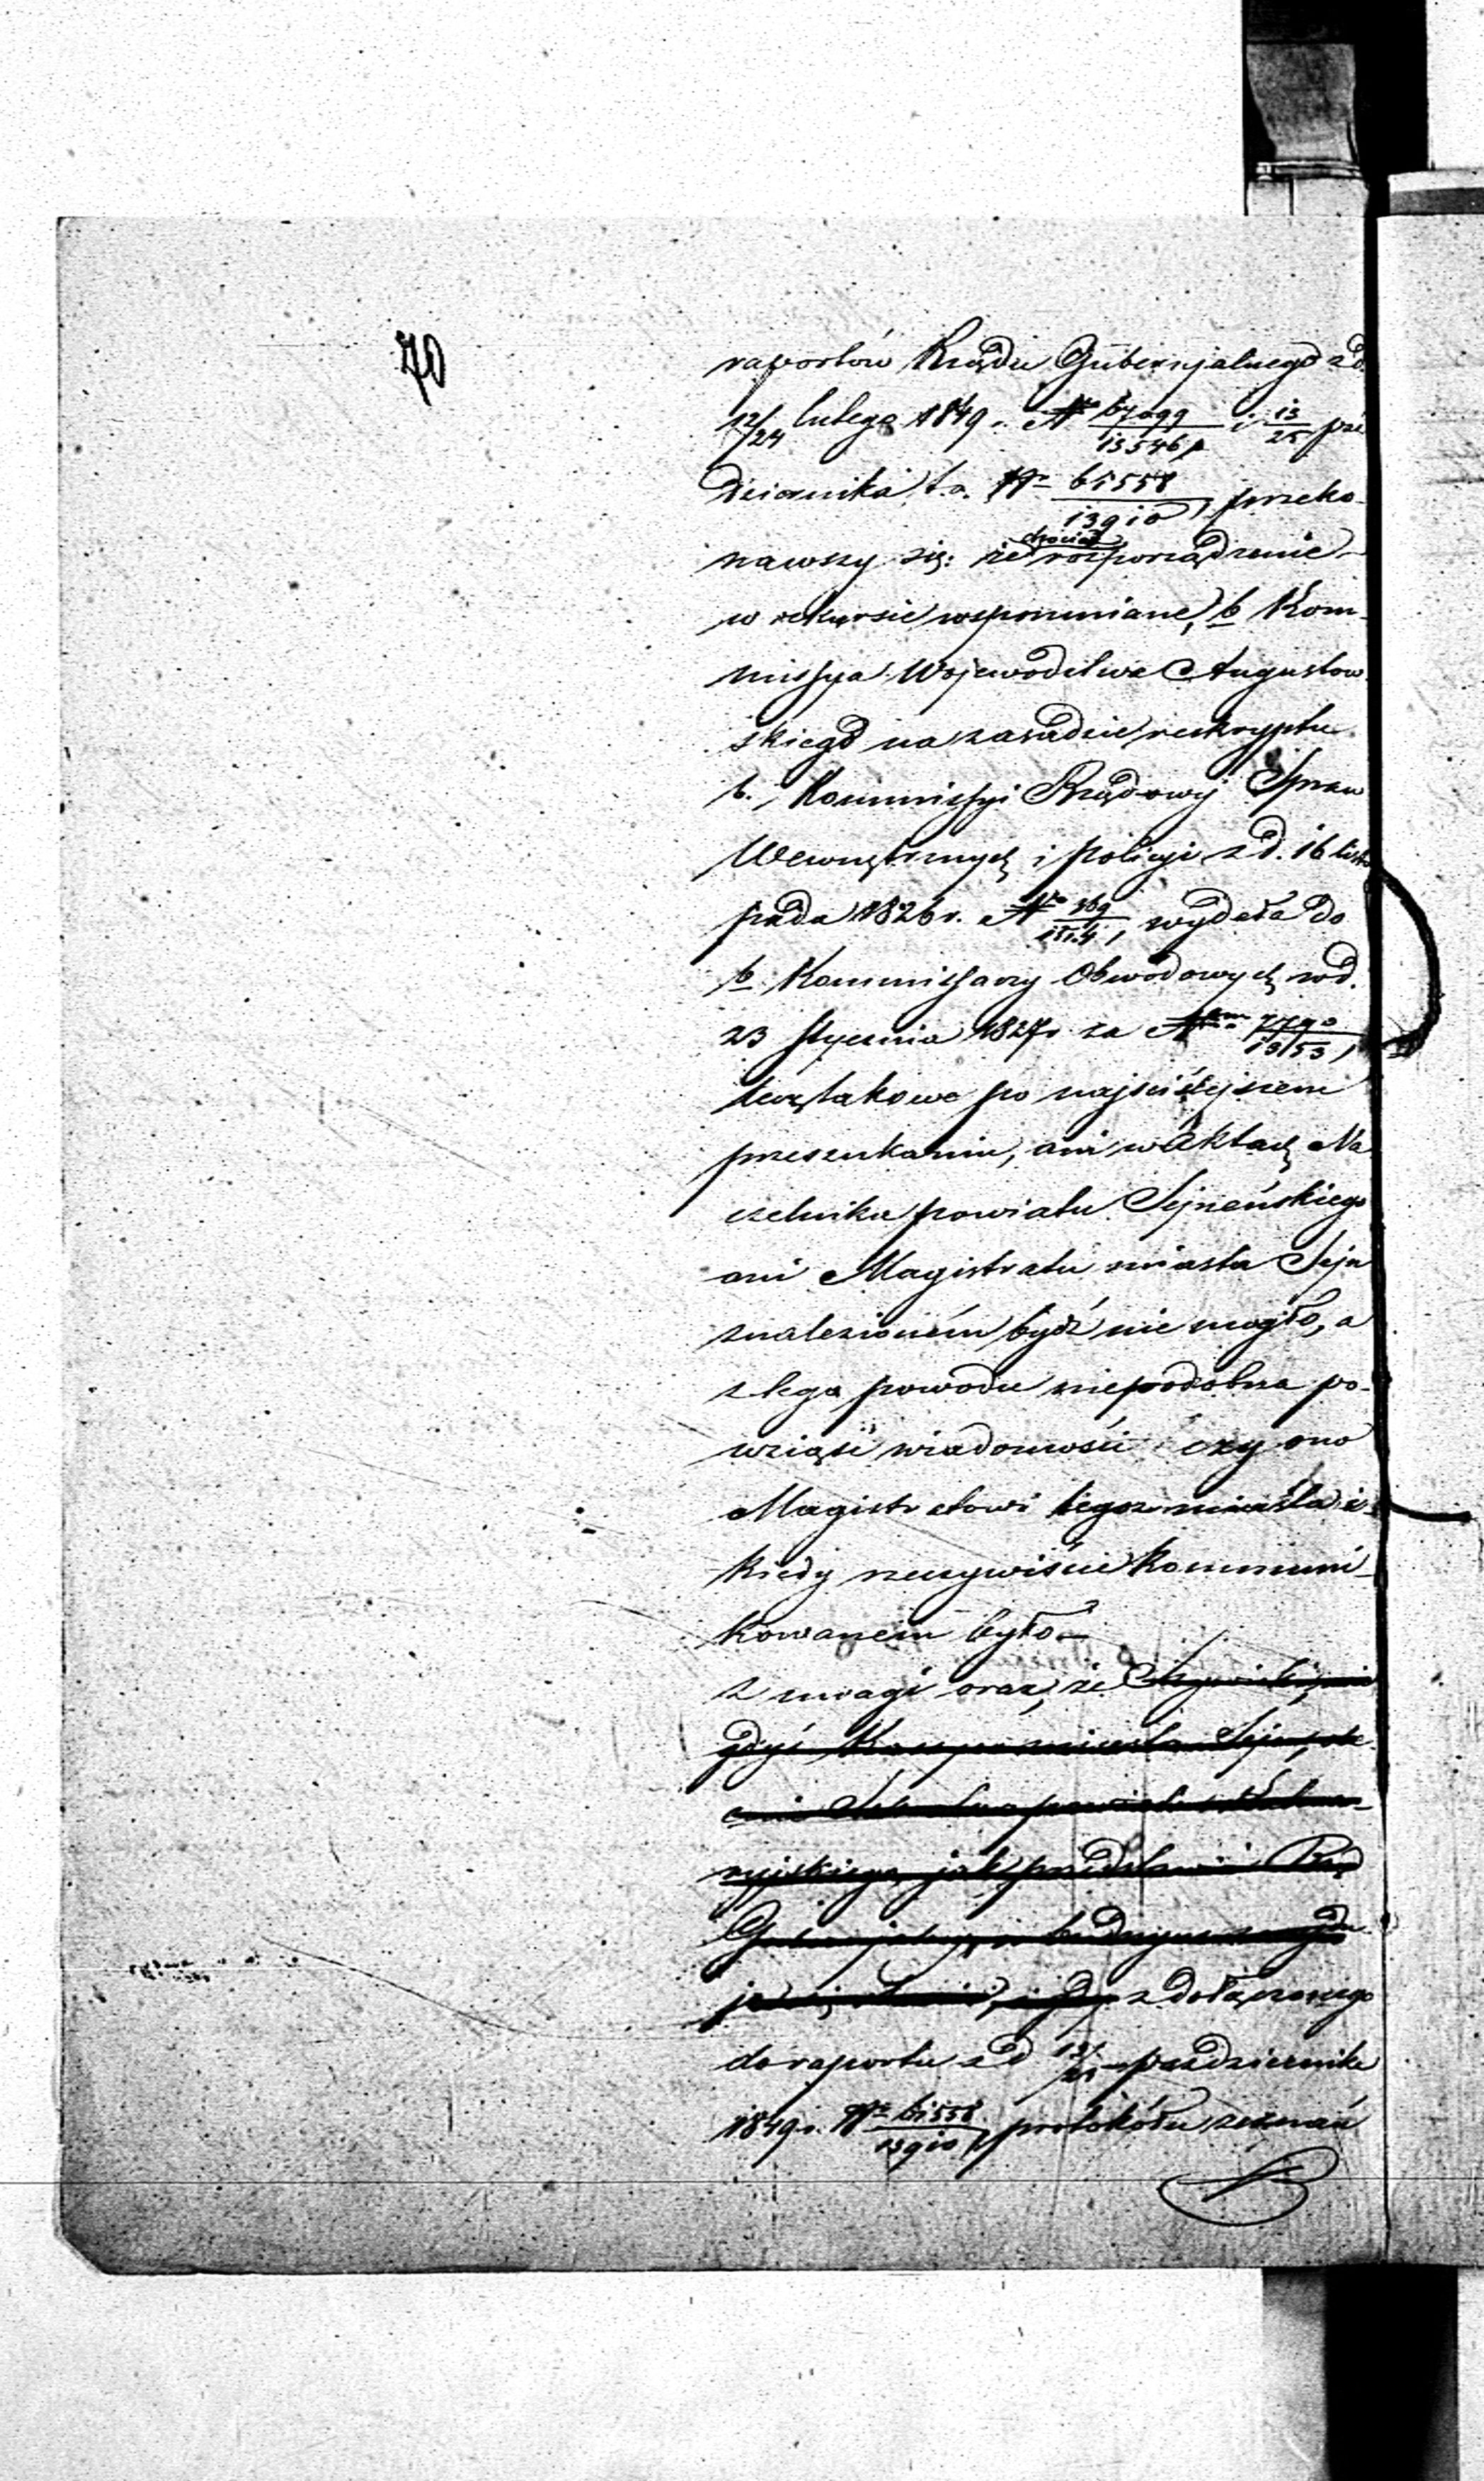 70
raportów Rządu Gubernjalnego z d.
12/24 lutego 1849 r. No 67099/13546 i 13/25 paź
dziernika t. r. No 61558/13910, przeko-
nawszy się: że chociaż rozporządzenie
w rekursie wspomniane, b. Kom-
missya Województwa Augustow-
skiego na zasadzie reskryptu
b. Kommissyi Rządowej Spraw
Wewnętrznych i policyi z d. 16 listo
pada 1826 r. No wydała do
b. Kommissarzy Obwodowych pod d.
23 Stycznia 1827 r. za Nem
lecz takowe po najściślejszem
przeszukaniu, ani w Aktach Na
czelnika powiatu Sejneńskiego
ani Magistratu miasta Sejn
znalezioném bydź nie mogło, a
z tego powodu niepodobna po-
wziąść wiadomości czy ono
Magistratowi tegoż miasta i
kiedy rzeczywiście kommuni-
kowanem było.
z uwagi oraz, że
gdyż Kassyer miasta Sejn
powiatu
jak przedstawił Rząd
z dołączonego
do raportu z d 13/25 października
1849 r. No 61558/13910, protokółu zeznań